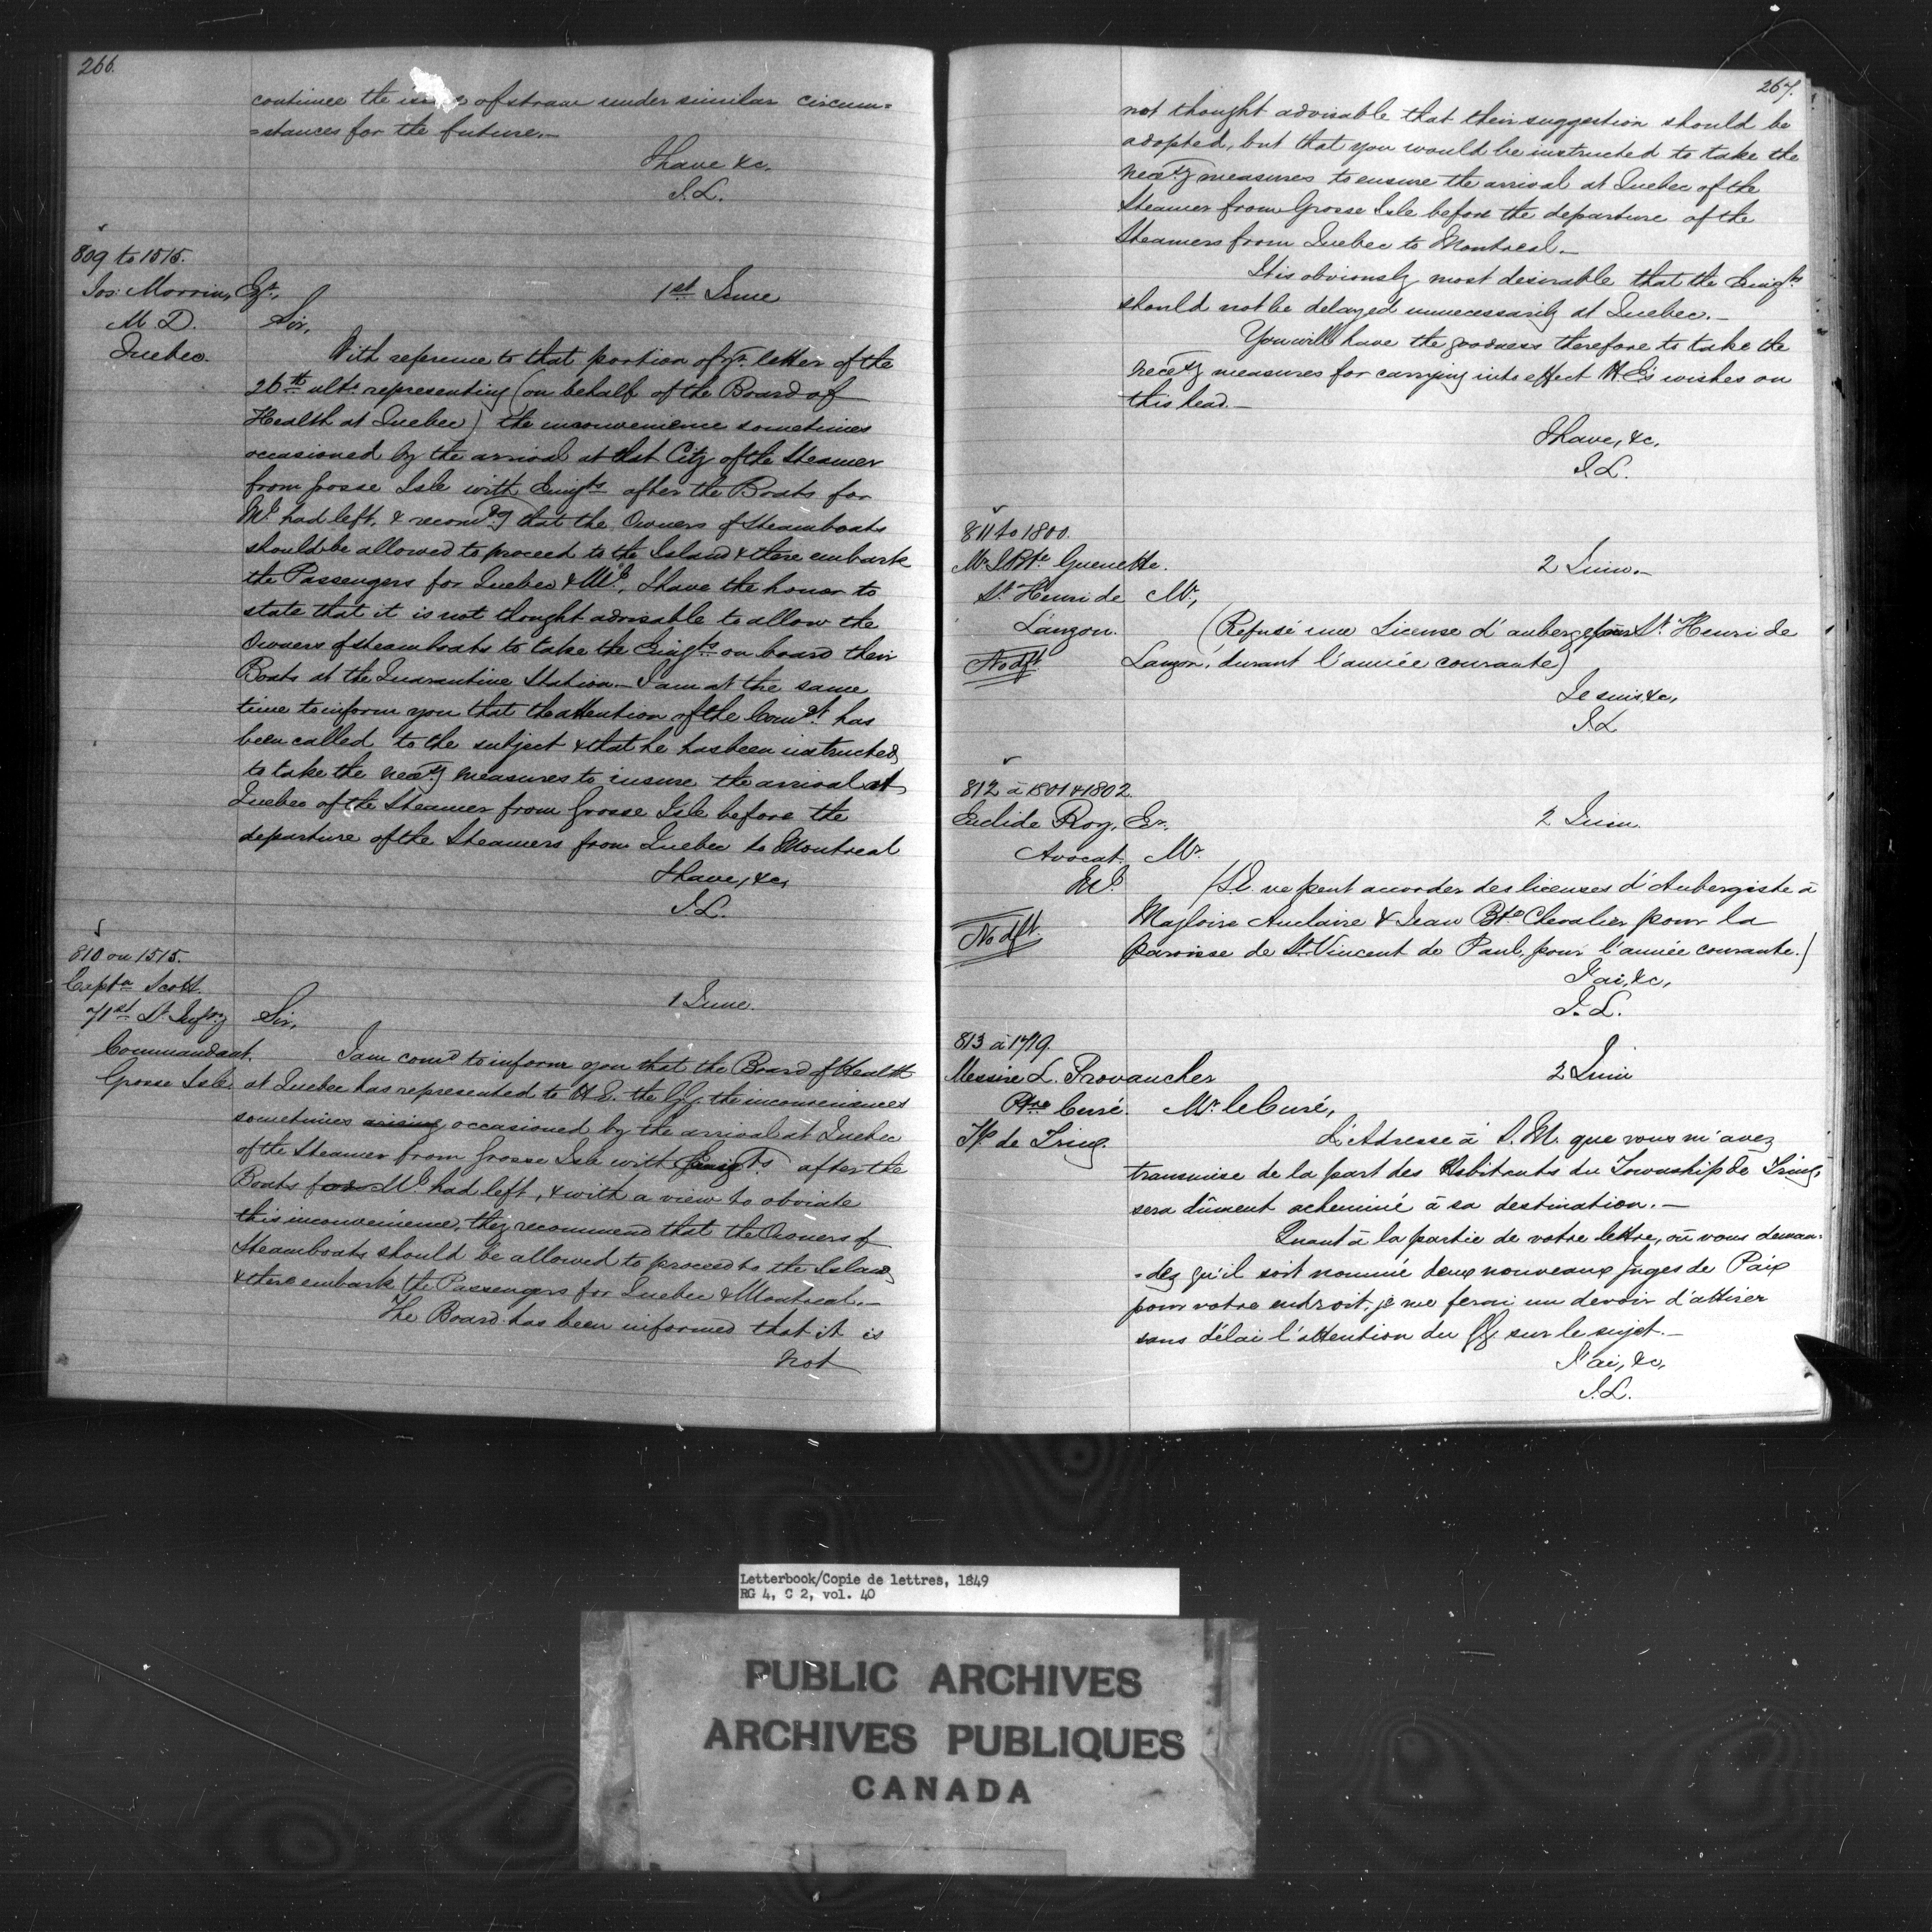 266.
continue the issue of straw under similar circum=
=stances for the future.—
I have &c.
J.L.
809 to 1515.
Jos: Morrin, Esqr.,
M. D.
Quebec.
1st June
Sir,
With reference to that portion of yr. letter of the
26th ulto. representing (on behalf of the Board of
Health at Quebec) the inconvenience sometimes
occasioned by the arrival at that City of the Steamer
from Grosse Isle with Emigts after the Boats for
Ml. had left, & recomdg that the Owners of Steamboats
should be allowed to proceed to the Island & there embark
the Passengers for Quebec & Ml., I have the honor to
state that it is not thought advisable to allow the
Owners of steamboats to take the Emigts. on board their
Boats at the Quarantine Station.— I am at the same
time to inform you that the attention of the Comdt. has
been called to the subject & that he has been instructed
to take the necesy measures to insure the arrival at
Quebec of the Steamer from Grosse Isle before the
departure of the Steamers from Quebec to Montreal
I have, &c,
J.L.
810 on 1515.
Captn Scott.
71st Lt. Infry
Commandant.
Grosse Isle.
1 June.
Sir,
I am comd to inform you that the Board of Health
at Quebec has represented to H.E. the GG. the inconveniences
sometimes arising occasioned by the arrival at Quebec
of the Steamer from Grosse Isle with Emigts. after the
Boats for Ml. had left, & with a view to obviate
this inconvenience, they recommend that the Owners of
Steamboats should be allowed to proceed to the Island
& there embark the Passengers for Quebec & Montreal.—
The Board has been informed that it is
not
267.
not thought advisable that their suggestion should be
adopted, but that you would be instructed to take the
necesy measures to ensure the arrival at Quebec of the
Steamer from Grosse Isle before the departure of the
Steamers from Quebec to Montreal.—
It is obviously most desirable that the Emigts.
should not be delayed unnecessarily at Quebec.—
You will have the goodness therefore to take the
necesy measures for carrying into effect H.E's wishes on
this head.—
I have, &c,
J.L.
811 to 1800.
Mr. J. Bte. Guenette.
St. Henri de
Lauzon.
No dft.
2 Juin.—
Mr.,
(Refusé une License d'auberge pour St. Henri de
Lauzon, durant l'année courante)
Je suis, &c,
J.L
812 à 1801 & 1802.
Euclide Roy, Er.
Avocat.
Ml.
No dft.
2 Juin.
Mr.
(S.E. ne peut accorder des licenses d'Aubergiste à
Magloire Auclaire & Jean Bte. Chevalier pour la
paroisse de St. Vincent de Paul, pour l'année courante.)
J'ai, &c,
J. L.
813 à 1719.
Messire L. Provancher
Ptre Curé.
Tp. de Tring.
2 Juin
Mr. le Curé,
L'Adresse à S.M. que vous m'avez
transmise de la part des Habitants du Township de Tring,
sera dûment acheminé à sa destination.—
Quant à la partie de votre lettre, où vous deman=
=dez qu'il soit nommé deux nouveaux Juges de Paix
pour votre endroit, je me ferai un devoir d'attirer
sans délai l'attention du GG. sur le sujet.—
J'ai, &c,
J.L.
Letterbook/Copie de lettres, 1849
RG 4, C 2, vol. 40
PUBLIC ARCHIVES
ARCHIVES PUBLIQUES
CANADA